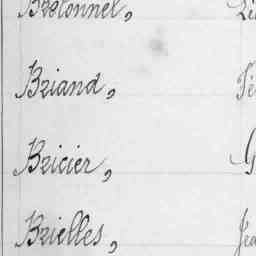 Bretonnel,
Briand,
Bricier,
Brielles,